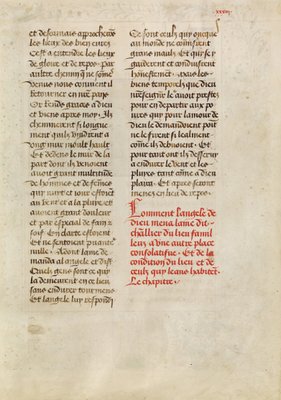 et desormais approchons
les lieux des bien eurez
Cest a entendre les lieux de
gloire et de repos Par
aultre chemin que
venus nous convient il
retourner en nre pays
Or rendz graces a dieu
et viens apres moy Ilz
cheminerent si longue
ment quilz vindrent a
vng mur moult hault
Et dedens le mur de la
part dont ilz venoient
auoit grant multitude
de hommes et de femes
qui nuit et iour estoient
au vent et a la pluye et
auoient grant douleur
et par especial de fain et
soif En clarte estoient
Et ne sentoient puante
nulle Adont lame de
manda al angele et dist
Quelz gens sont ce qui
la demeurent en ce lieu
sans endurer tourmens
Et langele luy respondi
Ce sont ceulx qui oncques
au monde ne
grans maulx Et si se
garderent et conduirent
honestement Mais les
biens temporelz que dieu
leur auoit prestez
pour en departir aux po
ures qui pour lamour de
dieu le demandoient point
ne le firent si realment
come ilz debuoient Et
pour tant ont ilz desseruy
a endurer le vent et les
pluyes tant come a dieu
plaira Et apres seront
menez en lieu de repos
Comment langele de
dieu mena lame dit
cheualier du lieu
leux a vne autre place
consolatiue Et de la
condition du lieu et de
ceulx qui leans habitent
Le chapitre